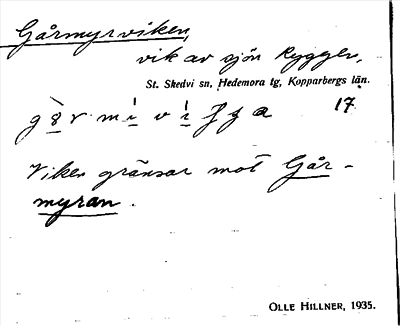 Gårmyrviken,
vik av sjön Ryggen,
St. Skedvi sn, Hedemora tg, Kopparbergs län.
17
Viken gränsar mot Går-
myran.
OLLE HILLNER, 1935.